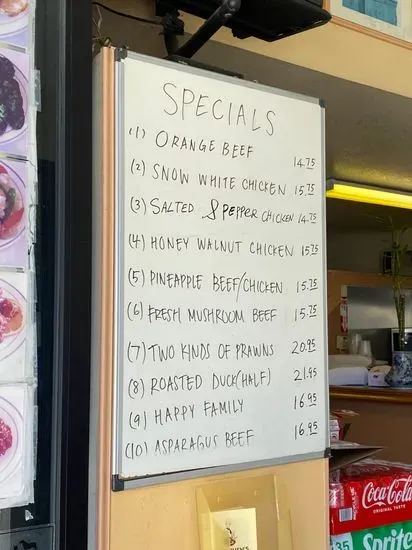 SPECIALS
(1) ORANGE BEEF 14.75
(2) SNOW WHITE CHICKEN 15.75
(3) SALTED & PEPPER CHICKEN 14.75
(4) HONEY WALNUT CHICKEN 15.75
(5) PINEAPPLE BEEF/CHICKEN 15.75
(6) FRESH MUSHROOM BEEF 15.75
(7) TWO KINDS OF PRAWNS 20.95
(8) ROASTED DUCK(HALF) 21.95
(9) HAPPY FAMILY 16.95
(10) ASPARAGUS BEEF 16.95
Coca-Cola
ORIGINAL TASTE
35
Sprite